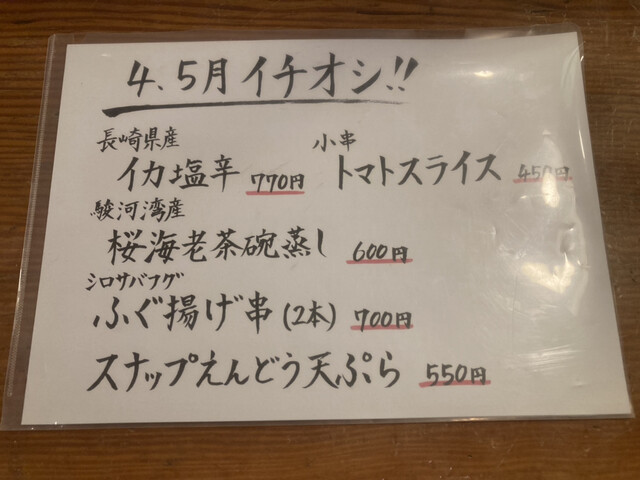 4.5月イチオシ!!
長崎県産
イカ塩辛 770円
小串
トマトスライス 450円
駿河湾産
桜海老茶碗蒸し 600円
シロサバフグ
ふぐ揚げ串(2本) 700円
スナップえんどう天ぷら 550円